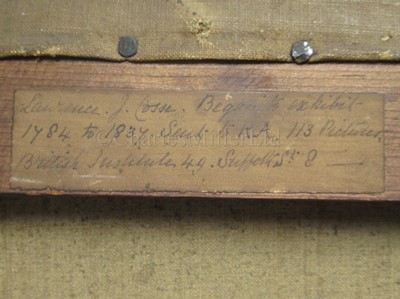 Lawrence. J. Cosse. Began to exhibit
1784 to 1837. Sent to R.A. 113 Pictures,
British Institute 49. Suffolk St 8 —
© Charles Miller Ltd